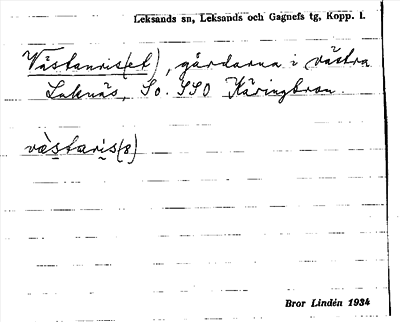 Leksands sn, Leksands och Gagnefs tg, Kopp. l.
Västanris(et), gårdarna i västra
Laknäs, So. SSO Käringbron.
væ̀starìs(ə)
Bror Lindén 1934